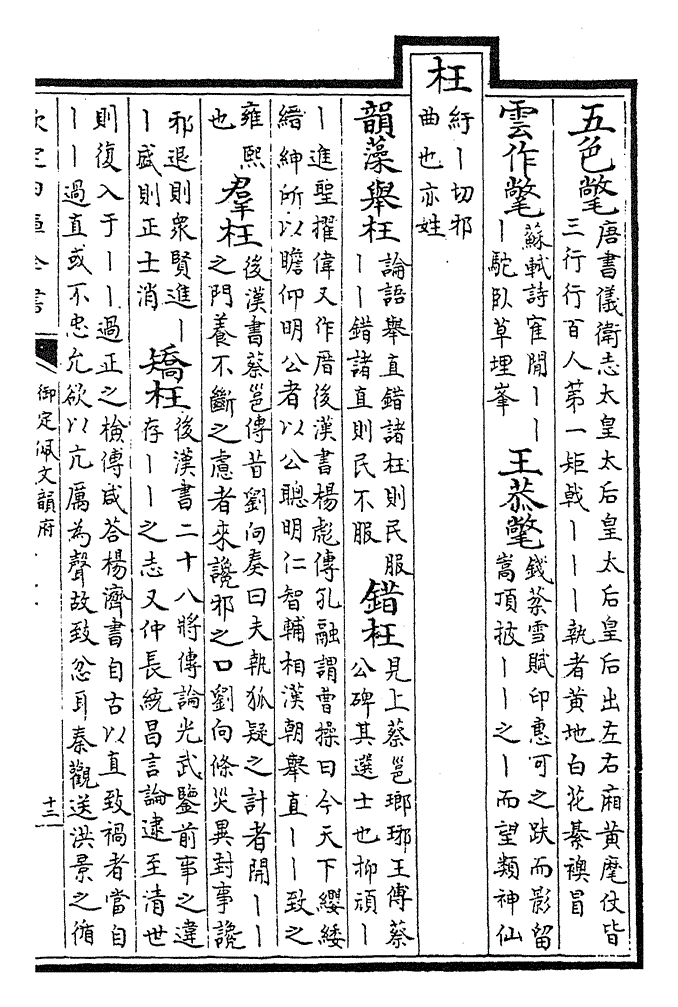 五色氅
唐書儀衛志太皇太后皇太后皇后出左右廂黃麾仗皆
三行行百人第一矩戟丨丨丨執者黃地白花綦襖冒
雲作氅
蘇軾詩寉閒丨丨
丨駝臥草埋峯
王恭氅
錢蒸雪賦印惠可之趺而影留
嵩頂披丨丨之丨而望類神仙
枉
紆丨切邪
曲也亦姓
韻藻舉枉
論語舉直錯諸枉則民服
丨丨錯諸直則民不服
錯枉
見上蔡邕瑯琊王傅蔡
公碑其選士也抑頑丨
丨進聖擢偉又作厝後漢書楊彪傳孔融謂曹操曰今天下纓緌
縉紳所以瞻仰明公者以公聰明仁智輔相漢朝舉直丨丨致之
雍熙
也
羣枉
後漢書蔡邕傳昔劉向奏曰夫執狐疑之計者開丨丨
之門養不斷之慮者來讒邪之口劉向條災異封事讒
邪退則衆賢進丨
丨盛則正士消
矯枉
後漢書二十八將傳論光武鑒前事之違
存丨丨之志又仲長統昌言論逮至清世
則復入于丨丨過正之檢傅咸答楊濟書自古以直致禍者當自
丨丨過直或不忠允欲以亢厲為聲故致忿耳秦觀送洪景之循
欽定四庫全書
御定佩文韻府
十三